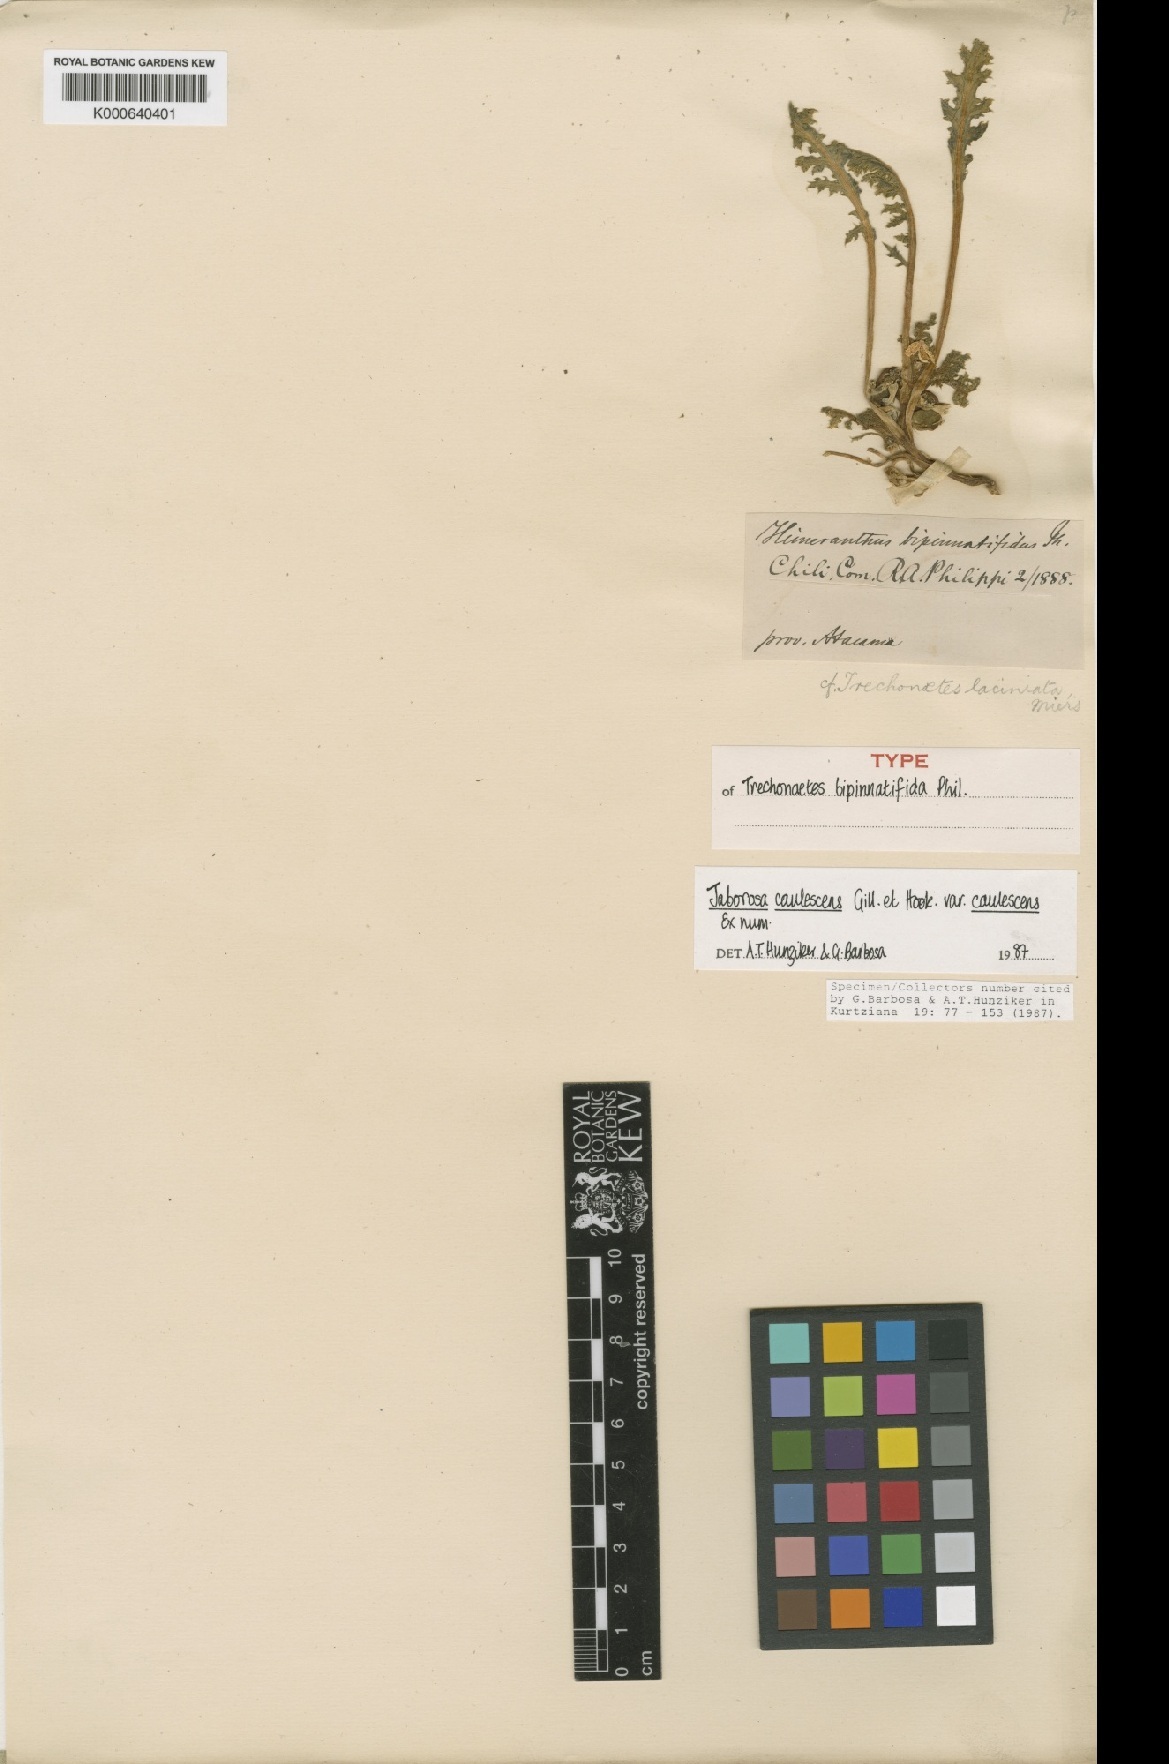 ROYAL BOTANIC GARDENS KEW
K000640401
Himeranthus bipinnatifidus Ph.
Chili. Com. R.A. Philippi 2/1888.
prov. Atacama
cf. Trechonætes laciniata,
Miers
TYPE
of Trechonaetes bipinnatifida Phil.
Jaborosa caulescens Gill. et Hook. var. caulescens
Ex num.
DET. A.T. Hunziker & G. Barbosa 1987
Specimen/Collectors number cited
by G.Barbosa & A.T.Hunziker in
Kurtziana 19: 77 - 153 (1987).
ROYAL
BOTANIC
GARDENS
KEW
copyright reserved
10
9
8
7
6
5
4
3
2
1
0
cm